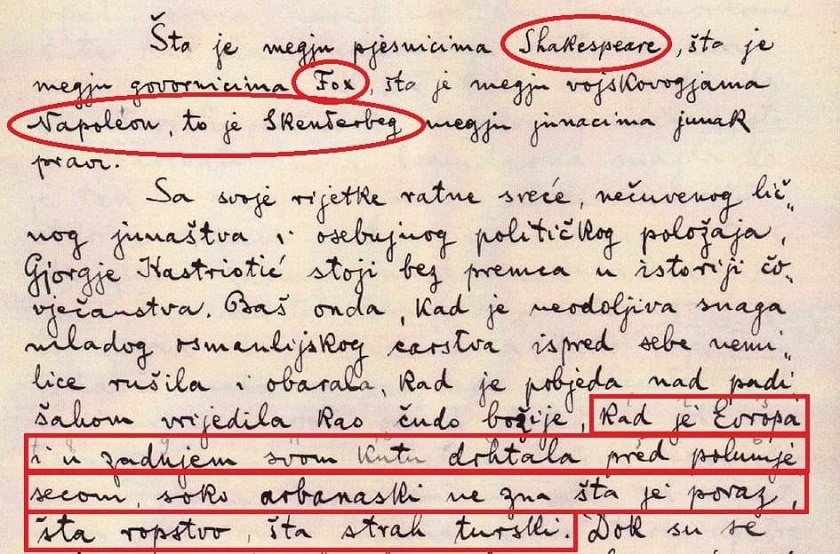 Šta je megju pjesnicima Shakespeare, šta je
megju govornicima Fox, šta je megju vojskovogjama
Napoléon, to je Skenderbeg megju junacima junak
pravi.
Sa svoje rijetke ratne sreće, nečuvenog lič„
nog junaštva i osebujnog političkog položaja,
Gjorgje Kastriotić stoji bez premca u istoriji čo„
vječanstva. Baš onda, kad je neodoljiva snaga
mladog osmanlijskog carstva ispred sebe nemi„
lice rušila i obarala, kad je pobjeda nad padi„
šahom vrijedila kao čudo božije, kad je Evropa
i u zadnjem svom kutu drhtala pred polumje
secom, soko arbanaski ne zna šta je poraz,
šta ropstvo, šta strah turski. Dok su se